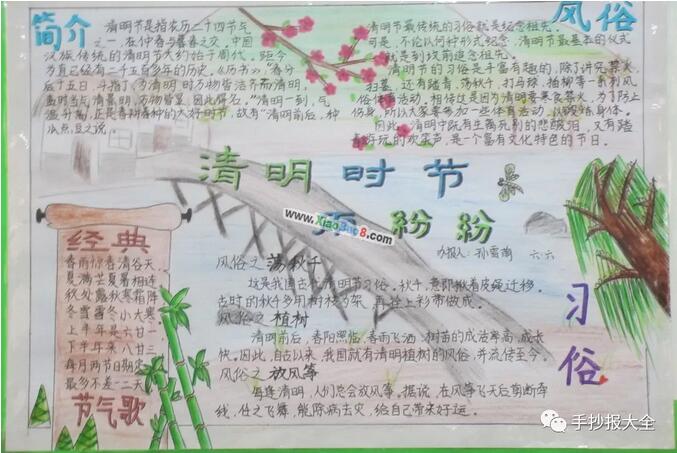 简介
清明节是指农历二十四节气
之一,在仲春与暮春之交,中国
汉族传统的清明节大约始于周代。距今
为真已经有二千五百多年的历史。《历书》:"春分
后十五日,斗指丁,为清明,时万物皆洁齐而清明,
盖时当气清景明,万物皆显,因此得名。"清明一到,气
温升高,正是春耕春种的大好时节,故有"清明前后,种
瓜点豆之说。
风俗
清明节最传统的习俗就是纪念祖先。
可是,不论以何种形式纪念,清明节最基本的仪式
就是到坟前追念祖先。
清明节的习俗是丰富有趣的,除了讲究禁火、
扫墓,还有踏青、荡秋千、打马球、插柳等一系列风
俗体育活动。相传这是因为清明节要寒食禁火,为了防止
伤身,所以大家要参加一些体育活动,以锻炼身体。
因此,清明中既有生离死别的悲酸泪,又有踏
青游玩的欢笑声,是一个富有文化特色的节日。
清明时节
雨纷纷
www.Xiao3ao8.com
办报人:孙雪茹 六、六
经典
春雨惊春清谷天,
夏满芒夏暑相连
秋处露秋寒霜降
冬雪雪冬小大寒,
上半年是六廿一
下半年来八廿三
每月两节日期定
最多不差一二天
节气歌
风俗之荡秋千
这是我国古代清明节习俗。秋千,意即揪着皮绳迁移。
古时的秋千多用树枝为架,再拴上彩带做成。
风俗之植树
清明前后,春阳照临,春雨飞洒,树苗的成活率高,成长
快。因此,自古以来,我国就有清明植树的风俗,并流传至今。
风俗之放风筝
每逢清明,人们总会放风筝。据说,在风筝飞天后剪断牵
线,任之飞舞,能除病去灾,给自己带来好运。
习俗
手抄报大全